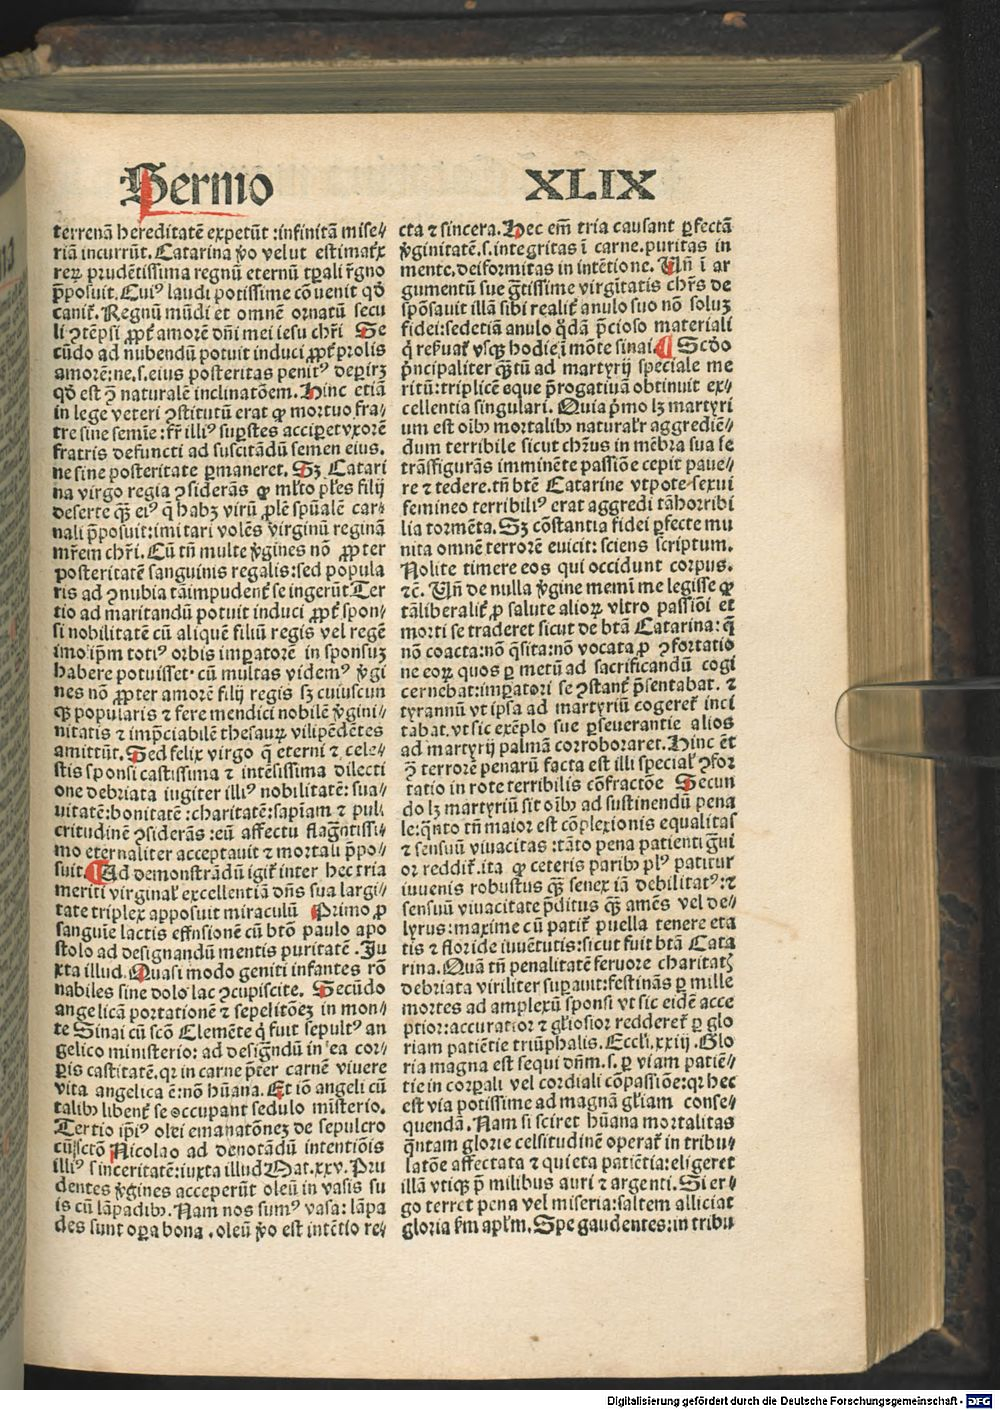 Sermo XLIX
terrenã hereditatẽ expetũt :infinitã mise⸗
riã incurrũt. Catarina ṽo velut estimatꝛix
reꝝ prudẽtissima regnũ eternũ tp̃ali r̃gno
p̃posuit. Cuiꝰ laudi potissime cõuenit qđ
canit᷑. Regnũ mũdi et omnẽ ornatũ secu
li ꝯtẽpsi ꝓpt᷑ amorẽ dñi mei iesu chr̃i. Se
cũdo ad nubendũ potuit induci ꝓpt᷑ prolis
amorẽ:ne.s.eius posteritas penitꝰ deꝑirꝫ
qđ est ꝯ̃ naturalẽ inclinatõem. Hinc etiã
in lege veteri ꝯstitutũ erat ꝙ mortuo fra⸗
tre sine semĩe: fr̃ illiꝰ suꝑstes acciꝑet vxorẽ
fratris defuncti ad suscitãdũ semen eius.
ne sine posteritate ꝑmaneret. Sꝫ Catari
na virgo regia ꝯsiderãs ꝙ ml̃to pl̃es filij
deserte qꝫ̃ eiꝰ q̃ habꝫ virũ ꝓlẽ spũalẽ car⸗
nali p̃posuit:imitari volẽs virginũ reginã
mr̃em chr̃i. Cũ tñ multe ṽgines nõ ꝓpter
posteritatẽ sanguinis regalis:sed popula
ris ad ꝯnubia tã impudent᷑ se ingerũt Ter
tio ad maritandũ potuit induci ꝓpt᷑ spon⸗
si nobilitatẽ cũ aliquẽ filiũ regis vel regẽ
imo ip̃m totiꝰ orbis imꝑatorẽ in sponsuꝫ
habere potuisset· cũ multas videmꝰ ṽgi
nes nõ ꝓpter amorẽ filij regis sꝫ cuiuscun
qꝫ popularis ⁊ fere mendici nobilẽ ṽgini⸗
nitatis ⁊ imp̃ciabilẽ thesauꝝ vilipẽdẽtes
amittũt. Sed felix virgo q̃ eterni ⁊ cele⸗
stis sponsi castissima ⁊ intẽsissima dilecti
one debriata iugiter illiꝰ nobilitatẽ: sua⸗
uitatẽ:bonitatẽ :charitatẽ:sapiam ⁊ pul
critudinẽ ꝯsiderãs :eũ affectu flagr̃atissi⸗
mo eternaliter acceptauit ⁊ mortali p̃po⸗
suit. ¶ Ad demonstrãdũ igit᷑ inter hec tria
meriti virginal̃ excellentiã dñs sua largi⸗
tate triplex apposuit miraculũ Primo ꝓ
sanguĩe lactis effusionẽ cũ btõ paulo apo
stolo ad designandũ mentis puritatẽ. Iu
xta illud. Quasi modo geniti infantes rõ
nabiles sine dolo lac ꝯcupiscite. Secũdo
angelicã portationẽ ⁊ sepelitõeꝫ in mon⸗
te Sinai cũ scõ Clemẽte q̇ fuit sepultꝰ an
gelico ministerio: ad desigñdũ in ea cor⸗
ꝑis castitatẽ.qꝛ in carne p̃ter carnẽ viuere
vita angelica ẽ:nõ hũana. Et iõ angeli cũ
talibꝫ libent᷑ se occupant sedulo mĩsterio.
Tertio ip̃iꝰ olei emanatõneꝫ de sepulcro
cũ sctõ Nicolao ad denotãdũ intentiõis
illiꝰ sinceritatẽ:iuxta illud Mat.xxv. Pru
dentes ṽgines acceperũt oleũ in vasis su
is cũ lãpadibꝫ. Nam nos sumꝰ vasa: lãpa
des sunt oꝑa bona . oleũ ṽo est intẽtio re⸗
cta ⁊ sincera. Hec em̃ tria causant ꝑfectã
ṽginitatẽ.s.integritas ĩ carne.puritas in
mente.deiformitas in intẽtione. Vñ ĩ ar
gumentũ sue g̃tissime virgĩtatis chr̃s de
spõsauit illã sibi realit᷑ anulo suo nõ soluꝫ
fidei:sed etiã anulo q̃dã p̃cioso materiali
q̇ reſuat᷑ vsqꝫ hodie ĩ mõte sinai. ¶ Scđo
p̃ncipaliter qꝫ̃tũ ad martyrij speciale me
ritũ:triplicẽ eque p̃rogatiuã obtinuit ex⸗
cellentia singulari. Quia p̃mo lꝫ martyri
um est oĩbꝫ mortalibꝫ natural̃r aggrediẽ⸗
dum terribile sicut chr̃us in mẽbra sua se
trãsfigurãs imminẽte passiõe cepit paue⸗
re ⁊ tedere.tñ btẽ Catarine vtpote sexui
femineo terribiliꝰ erat aggredi tã horribi
lia tormẽta. Sꝫ cõstantia fidei ꝑfecte mu
nita omnẽ terrorẽ euicit: sciens scriptum.
Nolite timere eos qui occidunt corpus.
⁊c. Vñ de nulla ṽgine memĩ me legisse ꝙ
tã liberalit᷑ ꝓ salute alioꝝ vltro passiõi et
morti se traderet sicut de btã Catarina: q̃
nõ coacta:nõ q̃sita:nõ vocata ꝓ ꝯfortatio
ne eoꝝ quos ꝑ metũ ad sacrificandũ cogi
cernebat:imꝑatori se ꝯstant᷑ p̃sentabat. ⁊
tyrannũ vt ipsa ad martyriũ cogeret᷑ inci
tabat.vt sic exẽplo sue ꝑseuerantie alios
ad martyrij palmã corroboraret. Hinc ẽt
ꝯ̃ terrorẽ penarũ facta est illi special̃ ꝯfor
tatio in rote terribilis cõfractõe Secun
do lꝫ martyriũ sit oĩbꝫ ad sustinendũ pena
le:q̃nto tñ maior est cõplexionis equalitas
⁊ sensuũ viuacitas :tãto pena patienti g̃ui
or reddit᷑.ita ꝙ ceteris paribꝫ plꝰ patitur
iuuenis robustus qꝫ̃ senex iã debilitatꝰ:⁊
sensuũ viuacitate p̃ditus qꝫ̃ amẽs vel de⸗
lyrus:maxime cũ patit᷑ puella tenere eta
tis ⁊ floride iuuẽtutis:sicut fuit btã Cata
rina. Quã tñ penalitatẽ feruore charitatꝭ
debriata viriliter suꝑauit:festinãs ꝑ mille
mortes ad amplexũ sponsi vt sic eidẽ acce
ptior:accuratior ⁊ gl̃iosior redderet᷑ ꝑ glo
riam patiẽtie triũphalis. Eccl̃i.xxiij. Glo
ria magna est sequi dñm.s.ꝑ viam patiẽ⸗
tie in corꝑali vel cordiali cõpassiõe:qꝛ hec
est via potissime ad magnã gl̃iam conse⸗
quendã. Nam si sciret hũana mortalitas
q̃ntam glorie celsitudinẽ operat᷑ in tribu⸗
latõe affectata ⁊ quieta patiẽtia:eligeret
illã vtiqꝫ p̃ milibus auri ⁊ argenti. Si er⸗
go terret pena vel miseria:saltem alliciat
gloria ẜm apl̃m. Spe gaudentes:in tribu
Digitalisierung gefördert durch die Deutsche Forschungsgemeinschaft - DFG